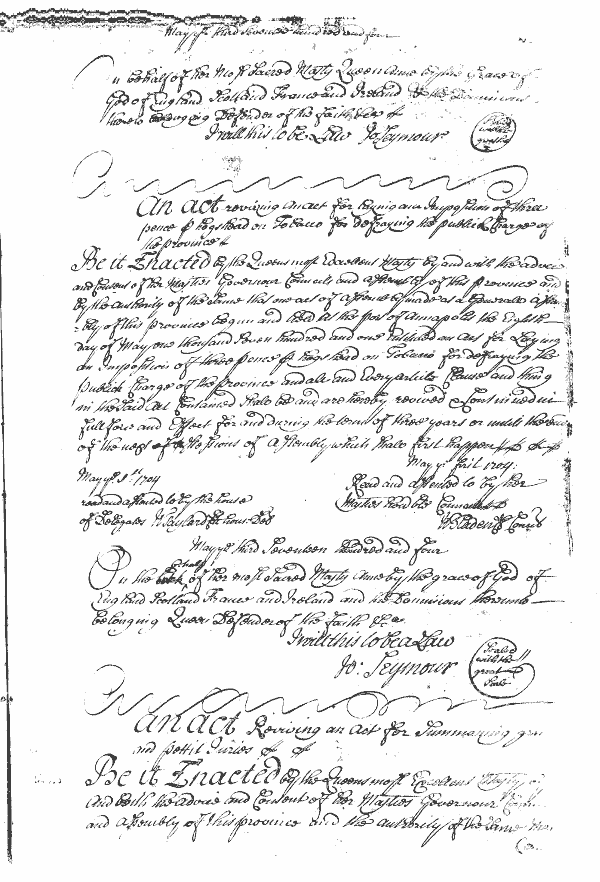 May ye third seventeen hundred and four
On behalf of her most Sacred Majty Queen Anne by the Grace of
God of England Scotland France and Ireland & the Dominions
thereto belonging Defender of the faith &ca
I will this to be a Law Jo: Seymour
Sealed with the great Seale
An act reviving an Act for laying an Imposition of three
pence p hogshead on Tobacco for defraying the publick Charge of
the province
Be it Enacted by the Queens most Excellent Majty by and with the advice
and Consent of her Majtys Governour Councill and assembly of this province and
by the authority of the same that one act of assembly made at a Generall assem
bly of this province begun and held at the port of Annapolis the Eighth
day of May one thousand seven hundred and one intituled an Act for Laying
an Imposition of three pence p hogshead on Tobacco for defraying the
publick Charge of the province and all and Every article Clause and thing
in the said Act Contained shall be and are hereby revived & Continued in
full force and Effect for and during the term of three years or untill the end
of the next Sessions of assembly which shall first happen
May ye first 1704
May ye 1st 1704
Read and assented to by her
read and assented to by the house
Majtys Honoble Councill
of Delegates W Taylard Cl house Del
W Bladen Cl Councl
May ye third Seventeen hundred and four
On the behalf of her most Sacred Majty Anne by the grace of God of
England Scotland France and Ireland and the Dominions thereunto
belonging Queen Defender of the faith &ca
I will this to be a Law
Jo: Seymour
Sealed
with the
great
Seale
An Act Reviving an Act for Summoning gra
and pettit Juries
Be it Enacted by the Queens most Excellent Majty
and with the advice and Consent of her Majtys Governour
and assembly of this province and the authority of the same